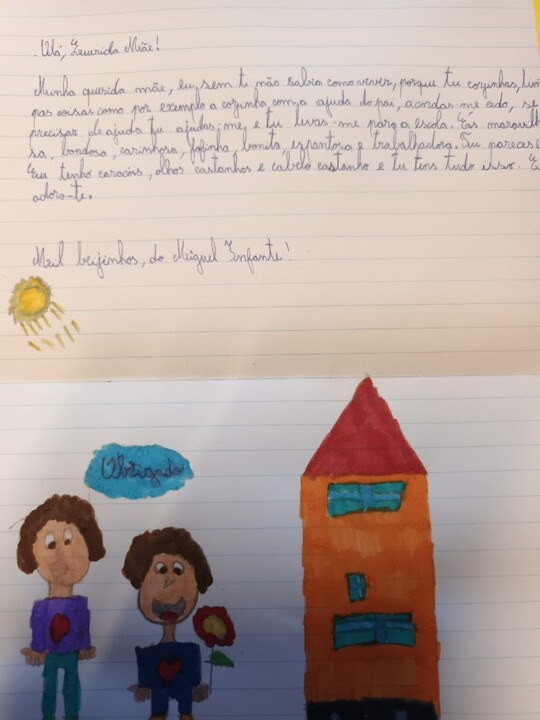 Olá, Querida Mãe!
Minha querida mãe, eu, sem ti não sabia como viver, porque tu cozinhas, lim
pas coisas como por exemplo a cozinha com a ajuda do pai, acordas-me cedo, se
precisar de ajuda tu ajudas-me e tu levas-me para a escola. És maravilh
sa, bondosa, carinhosa, fofinha, bonita, espantosa e trabalhadora. Tu pareces e
Eu tenho caracóis, olhos castanhos e cabelo castanho e tu tens tudo isso. E
adoro-te.
Mil beijinhos, do Miguel Infante!
Obrigado